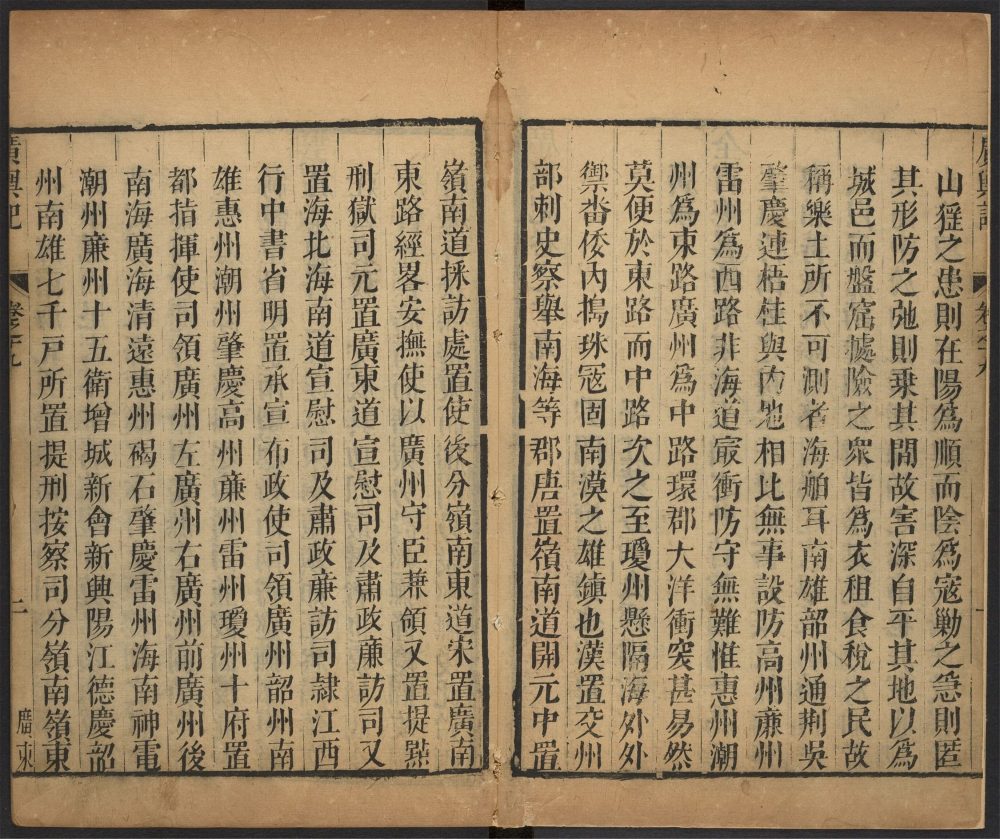 山猺之患則在陽爲順而陰爲寇勦之急則匿
其形防之弛則乗其間故害深自平其地以爲
城邑而盤窟㨿險之衆皆爲衣租食稅之民故
稱樂土所不可測者海舶耳南雄韶州通荆吳
肇慶連梧桂與內地相比無事設防高州㢘州
雷州爲西路非海道㝡衝防守無難惟惠州潮
州爲東路廣州爲中路環郡大洋衝突甚易然
莫便於東路而中路次之至瓊州懸隔海外外
禦畨倭內搗珠冦固南漠之雄鎮也漢置交州
部刺史察舉南海等郡唐置嶺南道開元中置
嶺南道採訪處置使後分嶺南東道宋置廣南
東路經畧安撫使以廣州守臣兼領又置提㸃
刑獄司元置廣東道宣慰司及肅政㢘訪司又
置海北海南道宣慰司及肅政㢘訪司隷江西
行中書省明置承宣布政使司領廣州韶州南
雄惠州潮州肇慶高州㢘州雷州瓊州十府置
都指揮使司領廣州左廣州右廣州前廣州後
南海廣海清遠惠州碣石肇慶雷州海南神電
潮州㢘州十五衛增城新會新興陽江德慶韶
州南雄七千戸所置提刑按察司分嶺南嶺東
廣輿記
卷之十九
二
廣東